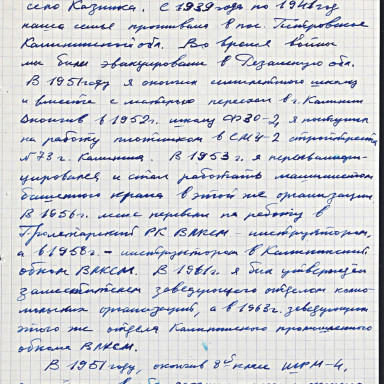 село Казинка. С 1939 года по 1948 год
наша семья проживала в пос. Петровское
Калининской обл. Во время войны
мы были эвакуированы в Рязанскую обл.
В 1951 году я окончил семилетнюю школу
и вместе с матерью переехал в г. Калинин
Окончив в 1952 г. школу ФЗО-2, я поступил
на работу плотником в СМУ-2 стройтреста
№73 г. Калинина. В 1953 г. я переквалифи-
цировался и стал работать машинистом
башенного крана в этой же организации
В 1956 г. меня перевели на работу в
Пролетарский РК ВЛКСМ - инструктором,
а в 1958 г. - инструктором в Калининский
обком ВЛКСМ. В 1961 г. я был утвержден
заместителем заведующего отделом комсо-
мольских организаций, а в 1963 г. заведующим
этого же отдела Калининского промышленного
обкома ВЛКСМ.
В 1951 году, окончив 8й класс ШРМ-4,